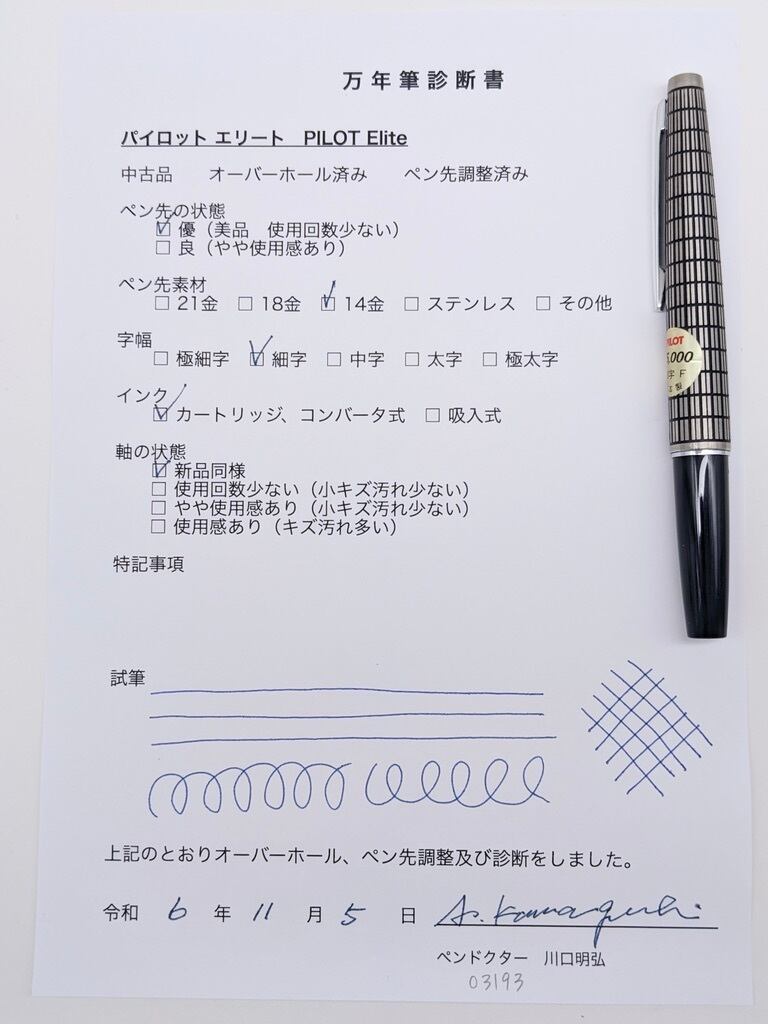 万年筆診断書
パイロット エリート　PILOT Elite
中古品　オーバーホール済み　ペン先調整済み
ペン先の状態
☑ 優（美品　使用回数少ない）
☐ 良（やや使用感あり）
ペン先素材
☐ 21金 ☐ 18金 ☑ 14金 ☐ ステンレス ☐ その他
字幅
☐ 極細字 ☑ 細字 ☐ 中字 ☐ 太字 ☐ 極太字
インク
☑ カートリッジ、コンバータ式 ☐ 吸入式
軸の状態
☑ 新品同様
☐ 使用回数少ない（小キズ汚れ少ない）
☐ やや使用感あり（小キズ汚れ少ない）
☐ 使用感あり（キズ汚れ多い）
特記事項
試筆
上記のとおりオーバーホール、ペン先調整及び診断をしました。
令和 6 年 11 月 5 日 A. Kawaguchi
ペンドクター　川口明弘
03193
PILOT
5,000
字 F
製